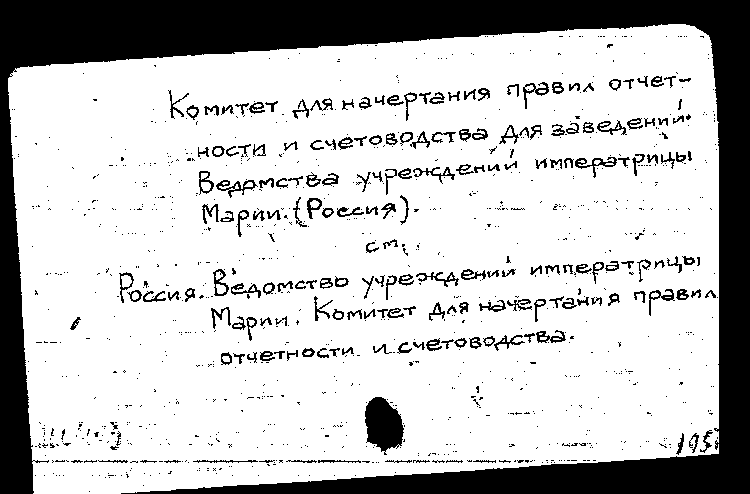 Комитет для начертания правил отчет-
ности и счетоводства для заведений
Ведомства учреждений императрицы
Марии. (Россия).
см.
Россия. Ведомство учреждений императрицы
Марии. Комитет для начертания правил
отчетности и счетоводства.